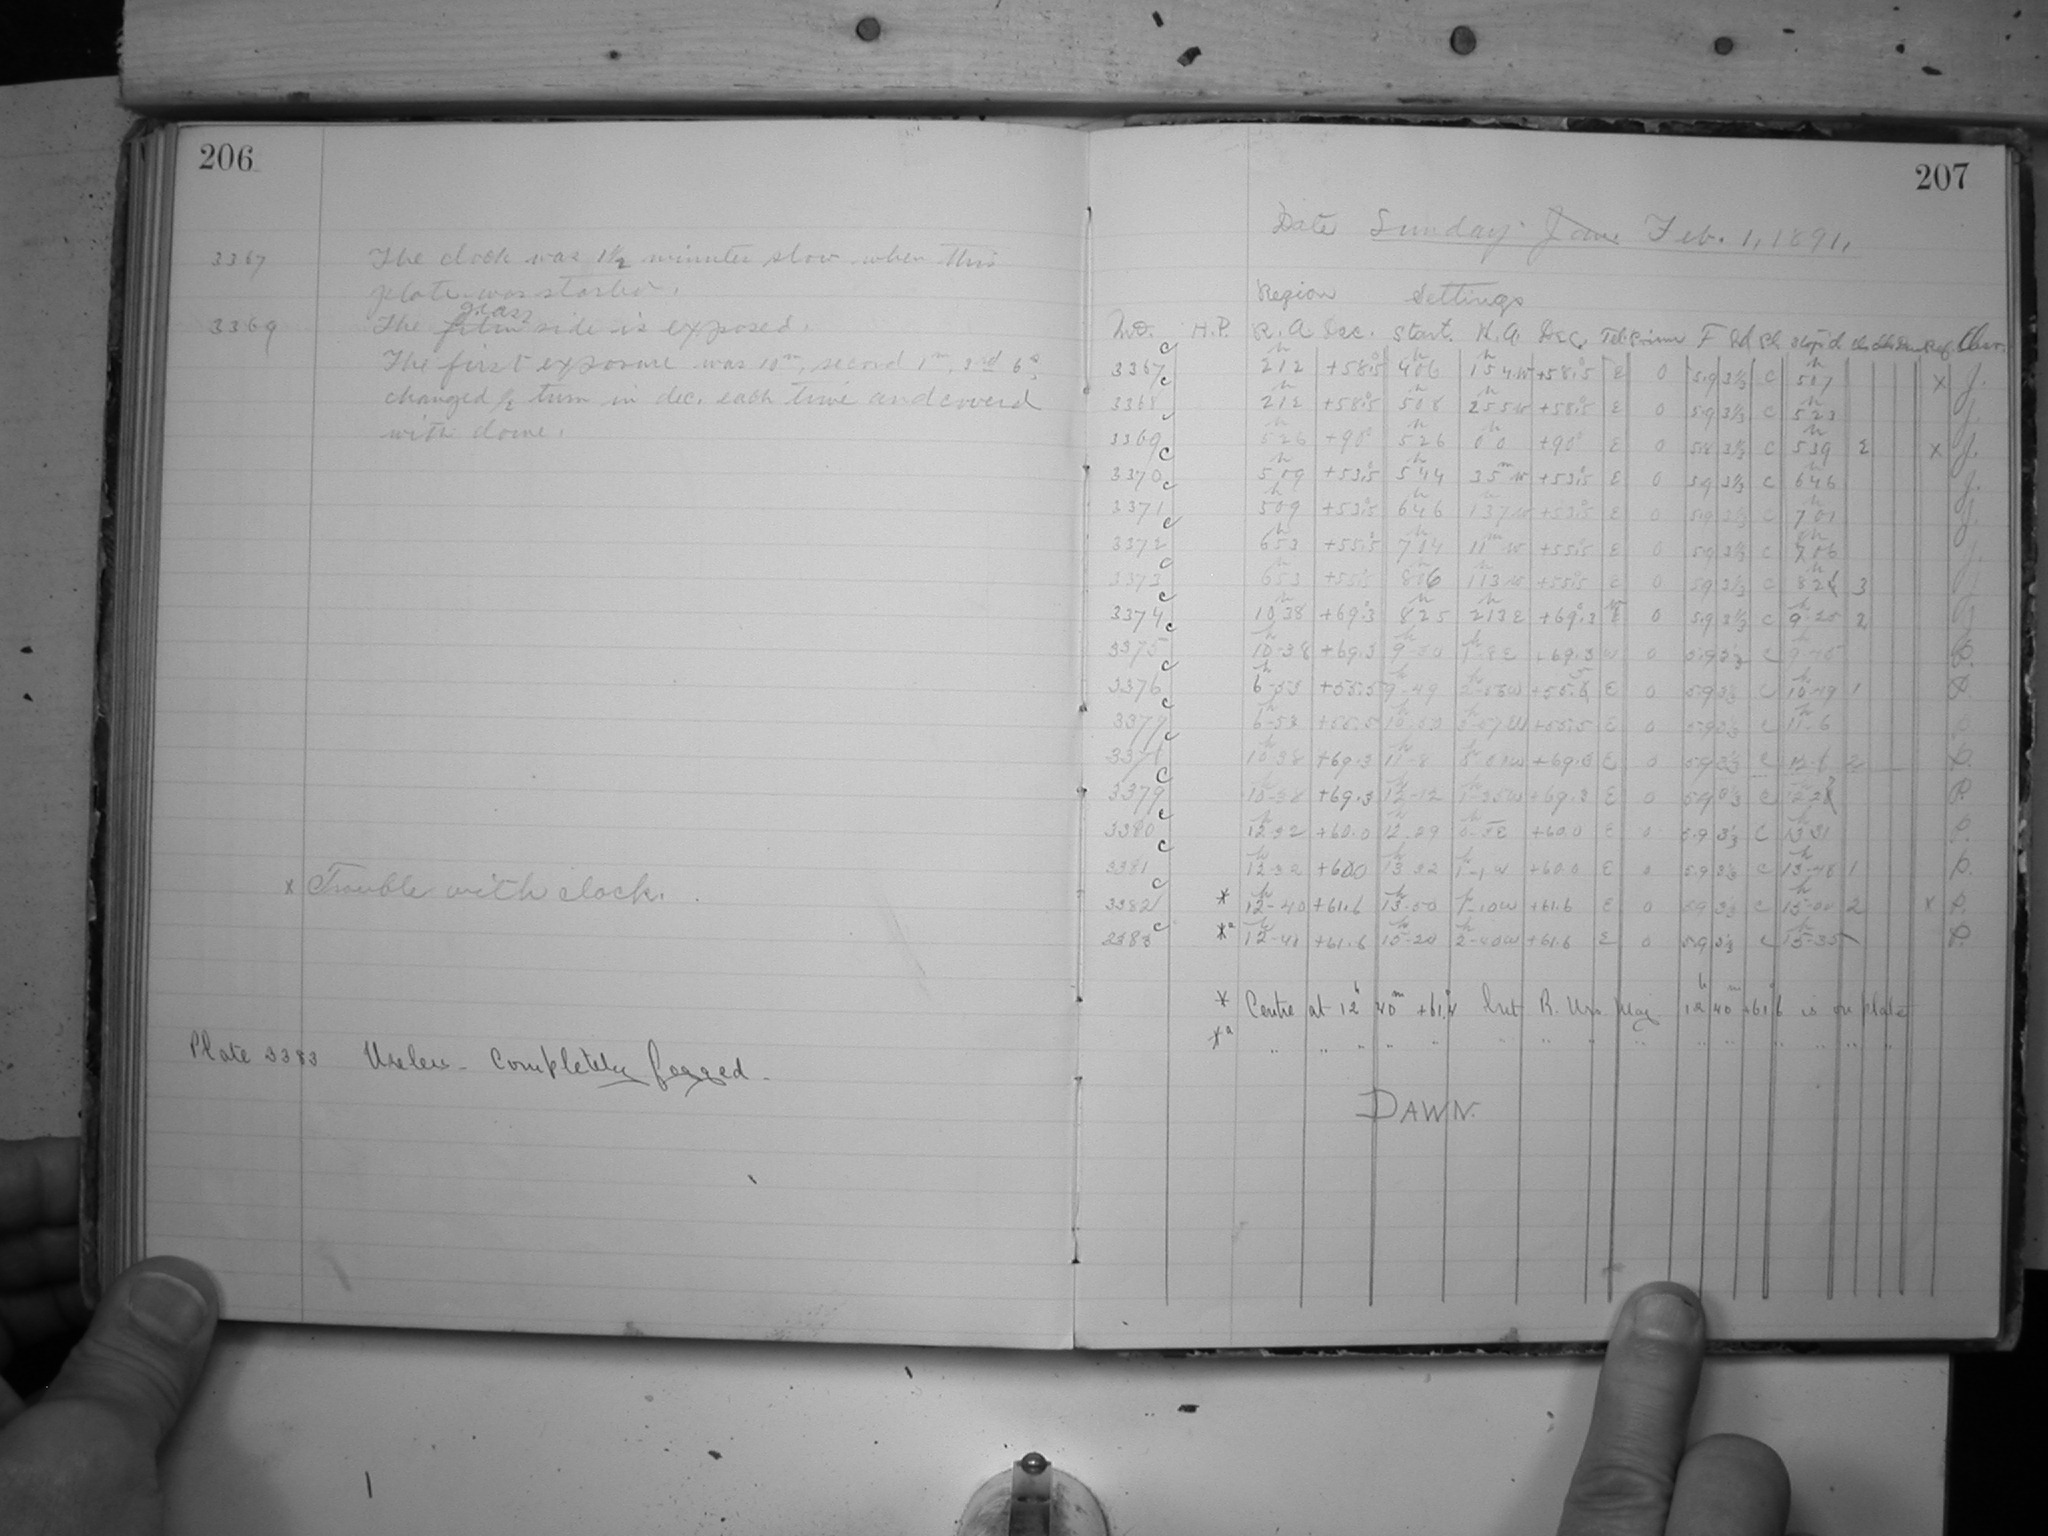 206
3367 The clock was 1 1/2 minutes slow when this
plate was started.
glass
3369 The film side is exposed.
The first exposure was 10m, second 1m, 3rd 6s
changed 1/2 turn in dec. each time and covered
with dome.
x Trouble with clock.
Plate 3383 Useless - Completely fogged.
207
Date Sunday Jan. Feb. 1, 1891.
Region Settings
No. H.P. R.A Dec. Start. H.A. Dec. Tel Prism F Sd Pl Stop'd Obser.
3367 c 2h12 +58°.5 406 1h54w +58°.5 E 0 5.9 3⅓ C 5h07 x J.
3368 c 2h12 +58°.5 5h08 2h55w +58°.5 E 0 5.9 3⅓ C 5h23 J.
3369 c 5h26 +90° 5h26 0h0 +90° E 0 5.8 3⅓ C 5h39 2 x J.
3370 c 5h09 +53°.5 5h44 35m w +53°.5 E 0 5.9 3⅓ C 646 J.
3371 c 5h09 +53°.5 6h46 1h37w +53°.5 E 0 5.9 3⅓ C 7h01 J.
3372 c 6h53 +55°.5 7h04 11m w +55°.5 E 0 5.9 3⅓ C J.
3373 c 6h53 +55.5 806 1h13w +55°.5 E 0 5.9 3⅓ C 3 J.
3374 c 10h38 +69°.3 8h25 2h13E +69°.3 0 5.9 3⅓ C 9h-25 2 J.
3375 c 10h-38 +69.3 9h-30 1h-8E +69.3 w 0 5.9 3⅓ C 9h-45 P.
3376 c 6h-53 +55.5 9h-49 2h-56w +55.5 E 0 5.9 3⅓ C 10h-49 1 P.
3377 c 6h-53 +55.5 10h-50 3h-57w +55.5 E 0 5.9 3⅓ C 11h-6 P.
3378 c 10h38 +69.3 11h-8 +69.3 E 0 5.9 3⅓ C 2 P.
3379 c 10h-38 +69.3 12h-12 1h-35w +69.3 E 0 5.9 3⅓ C P.
3380 c 12h32 +60.0 12h-29 +60.0 E 0 5.9 3⅓ C 13h31 P.
3381 c 12h-32 +60.0 13h32 1h-1w +60.0 E 0 5.9 3⅓ C 13h-48 1 P.
3382 c * 12h-40 +61.6 13h-50 1h-10w +61.6 E 0 5.9 3⅓ C 15h-00 2 x P.
3383 c *a 12h-41 +61.6 15h-20 2h-40w +61.6 E 0 5.9 3⅓ C 15h-35 P.
* Centre at 12h 40m +61°.4 but R. Urs. Maj. 12h 40m +61°.6 is on plate
*a " " " " " " " " " " " " " " "
DAWN.